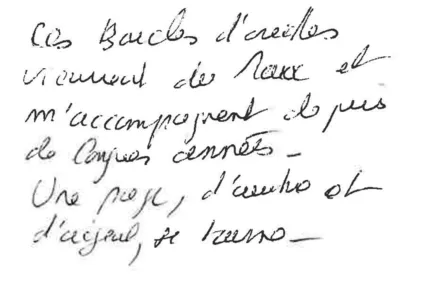 Ces Boucles d'oreilles
viennent de et
m'accompagnent depuis
de longues années -
Une page, d'ambre et
d'argent, se tourne -